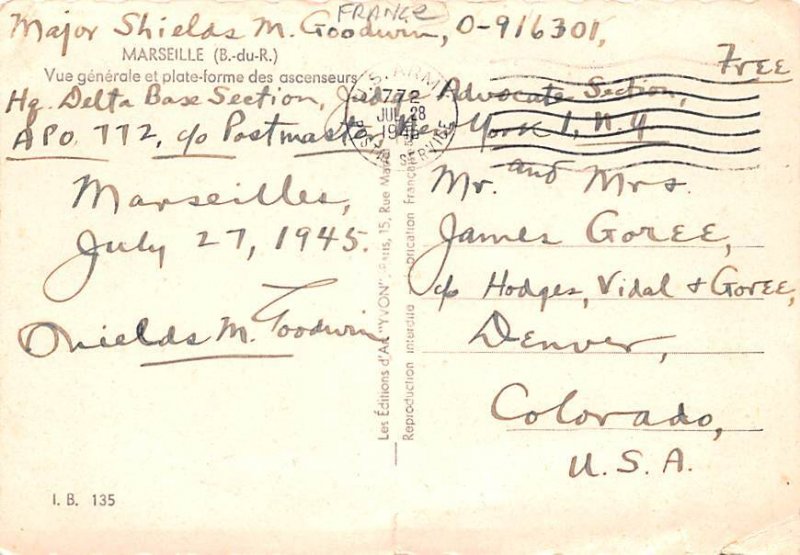 FRANCE
Major Shields M. Goodwin, O-916301,
MARSEILLE (B.-du-R.)
Vue générale et plate-forme des ascenseurs
Free
Hq. Delta Base Section, Judge Advocate Section,
APO 772, c/o Postmaster, New York 1, N.Y.
U.S. ARMY
772
JUL 28
1945
POSTAL SERVICE
Marseilles,
July 27, 1945.
Shields M. Goodwin
Mr. and Mrs.
James Goree,
c/o Hodges, Vidal & Goree,
Denver,
Colorado,
U.S.A.
Les Éditions d'Art "YVON", Paris, 15, Rue
Reproduction interdite Fabrication Française
I. B. 135